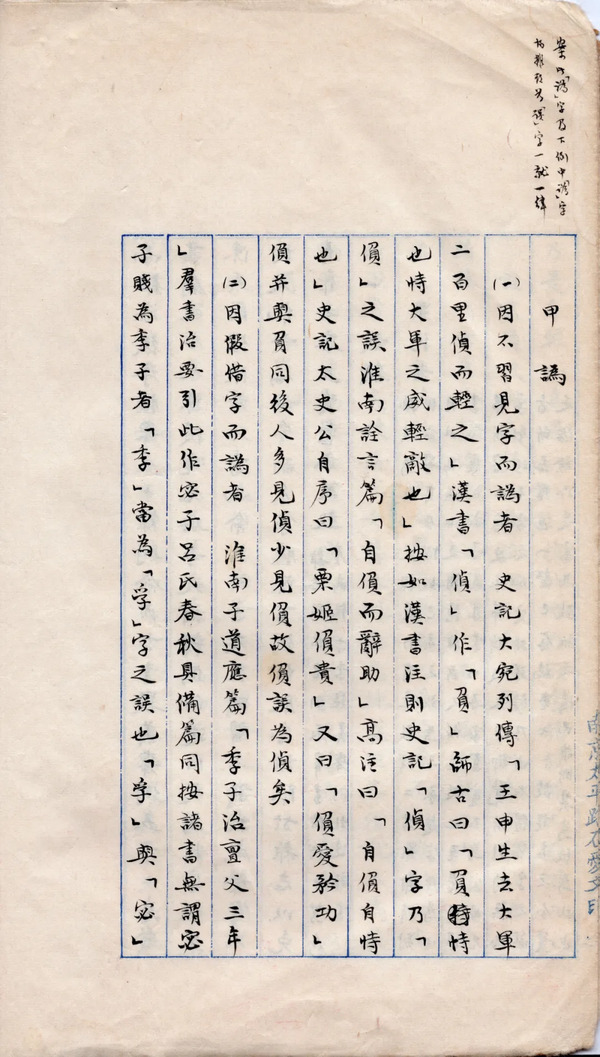 字乃下例中「譌」字
字一就一律
甲 譌
(一)因不習見字而譌者 史記大宛列傳「王申生去大軍
二百里偵而輕之」漢書「偵」作「負」師古曰「負恃
也恃大軍之威輕敵也」按如漢書注則史記「偵」字乃「
偩」之誤淮南詮言篇「自偩而辭助」高注曰「自偩自恃
也」史記太史公自序曰「栗姬偩貴」又曰「偩愛矜功」
偩并與負同後人多見偵少見偩故偩誤為偵矣
(二)因假借字而譌者 淮南子道應篇「季子治亶父三年
」羣書治要引此作宓子呂氏春秋具備篇同按諸書無謂宓
子賤為季子者「季」當為「孚」字之誤也「孚」與「宓」
太平路